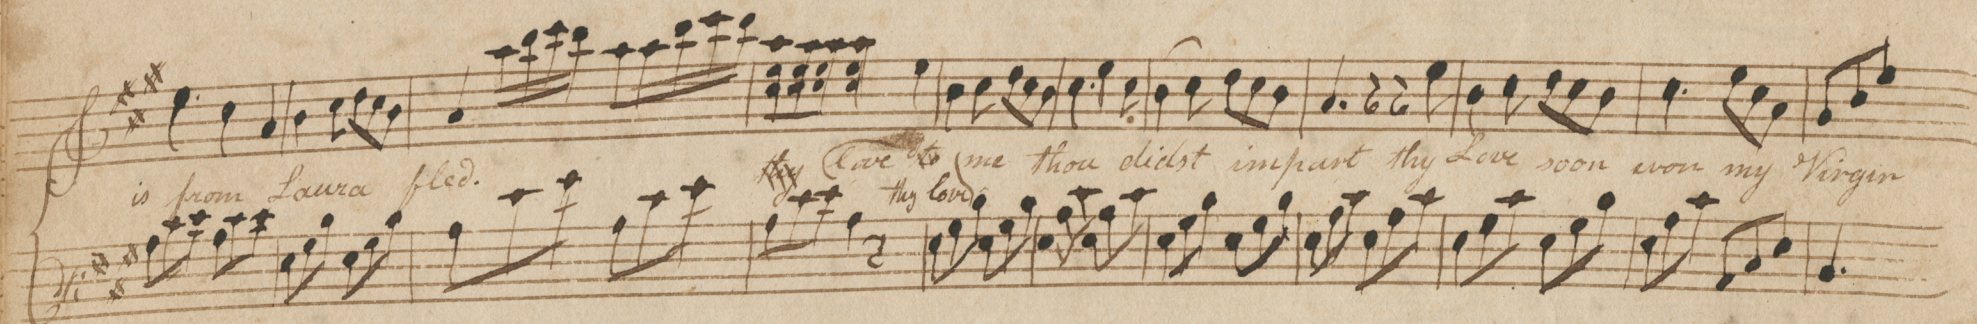 is from Laura fled. thy love to me thou didst impart thy Love soon won my Virgin
thy love